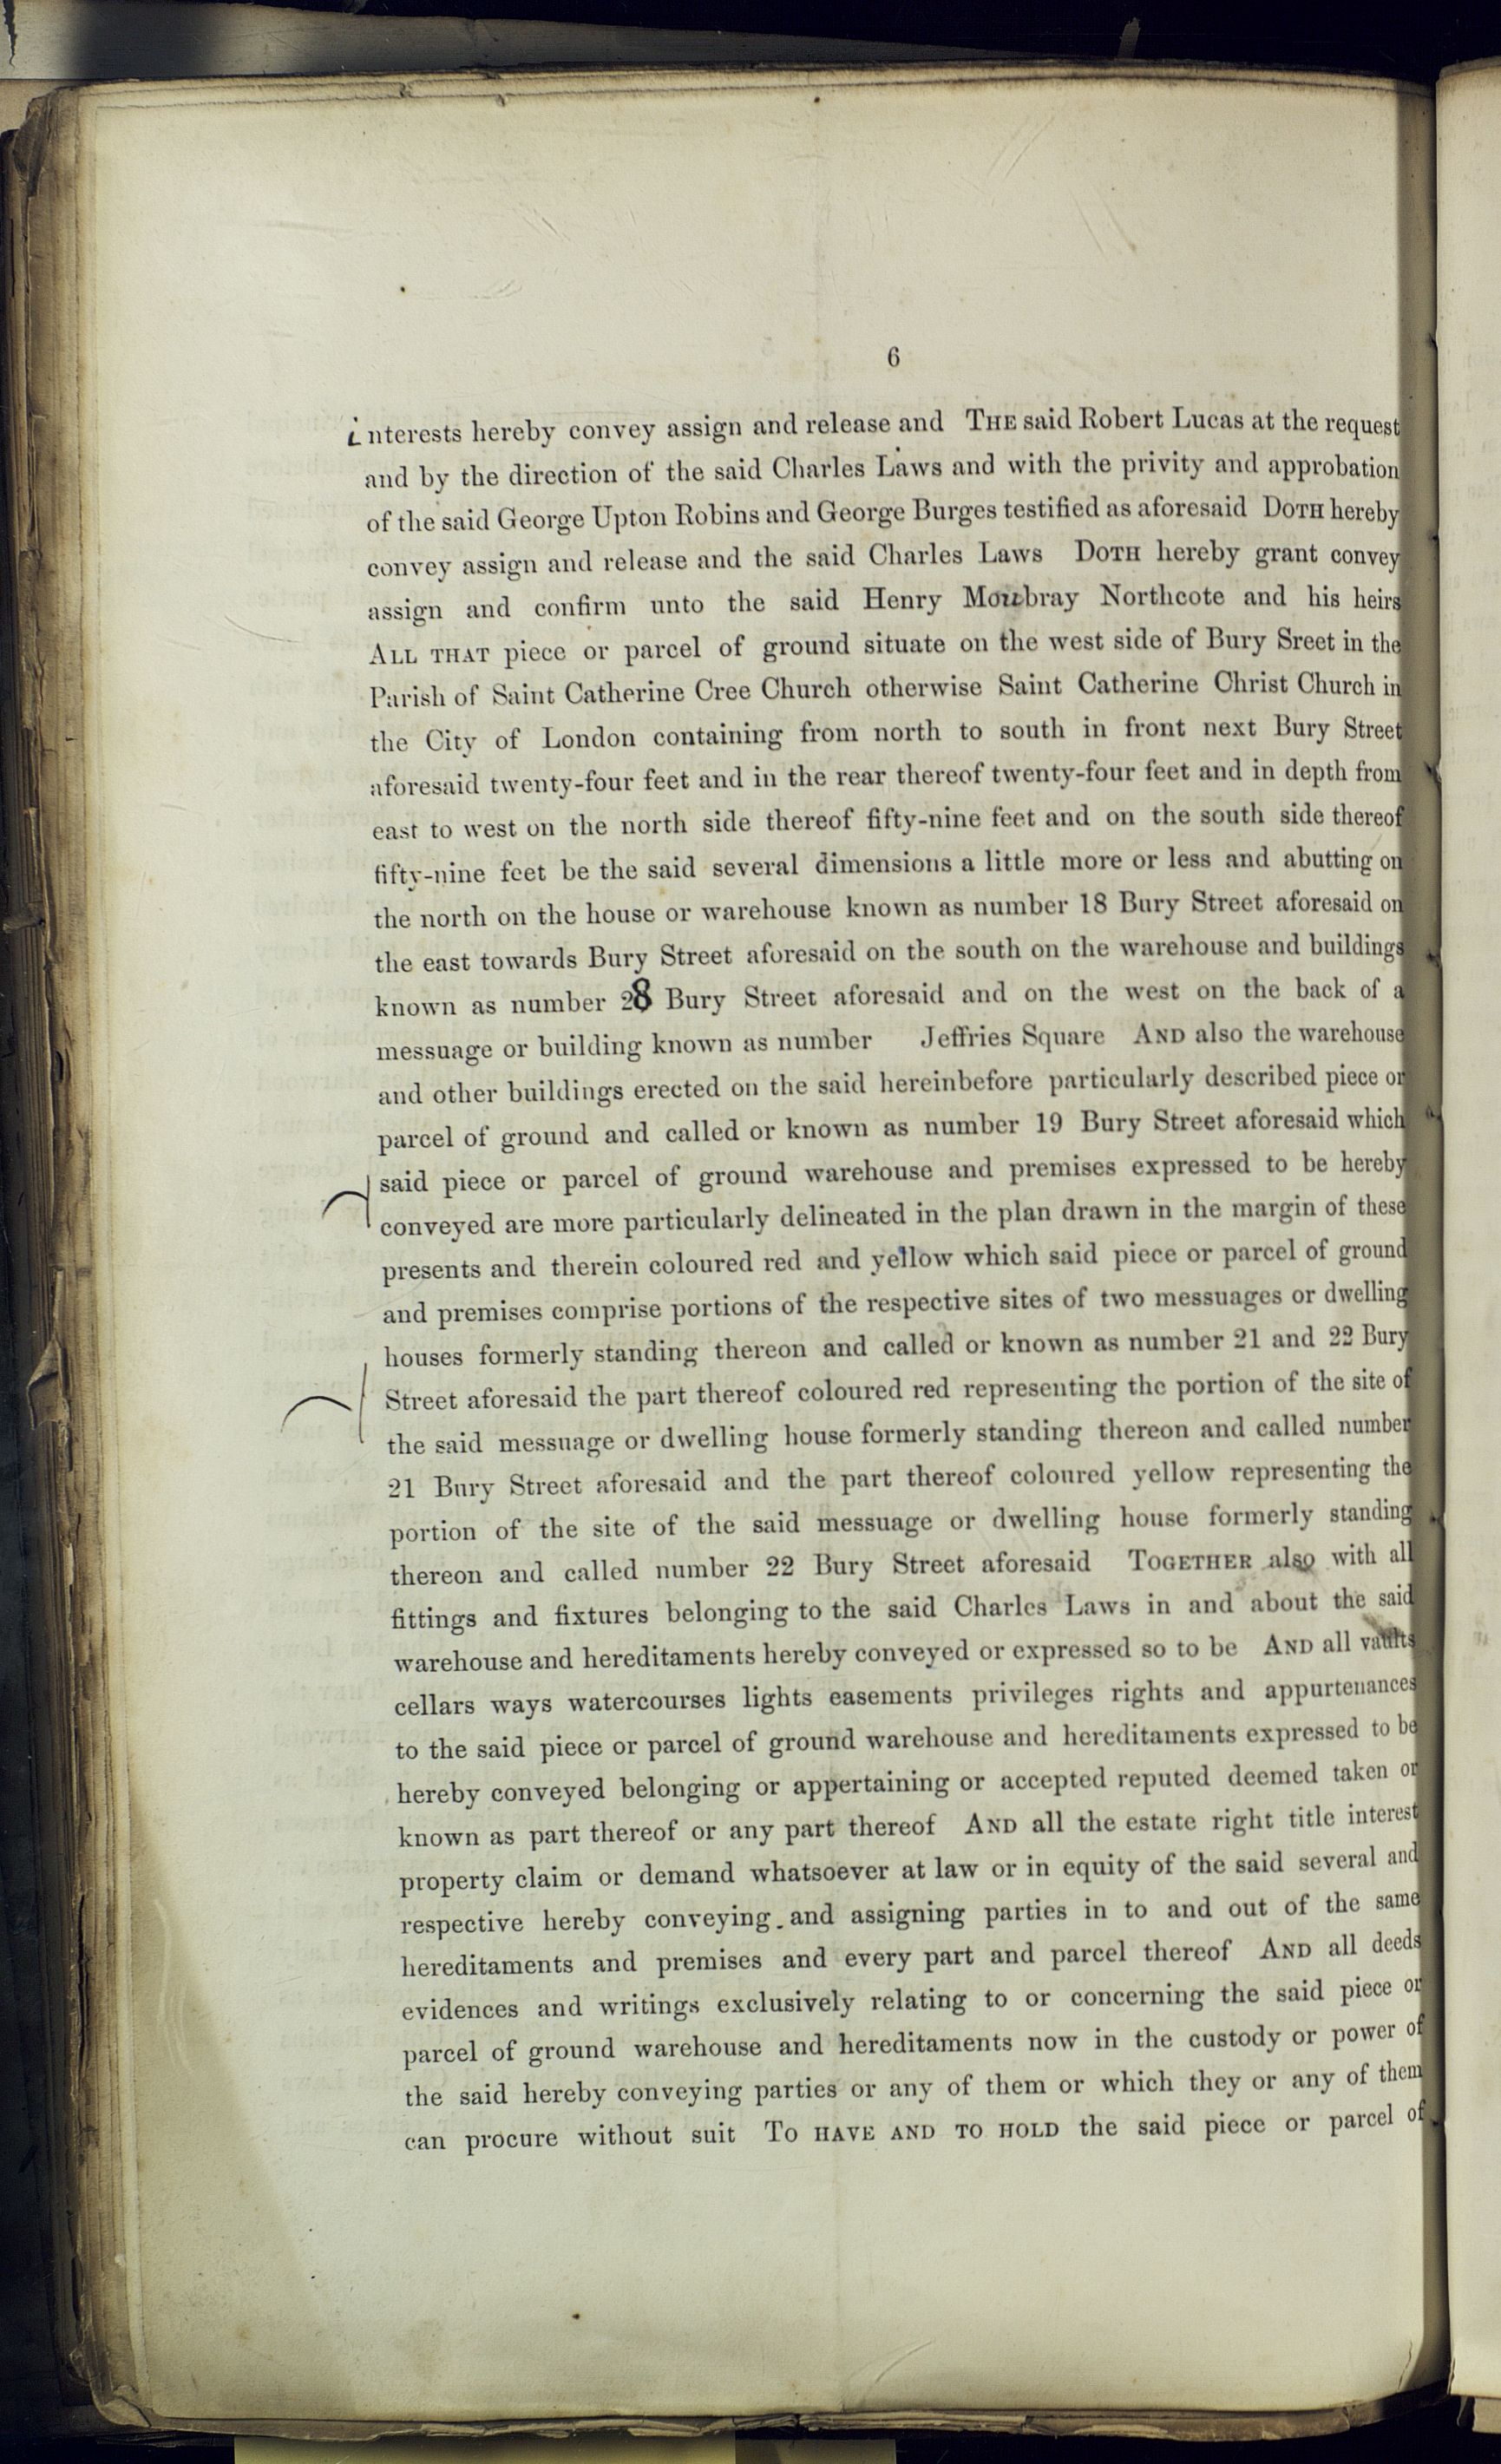 6
interests hereby convey assign and release and THE said Robert Lucas at the request
and by the direction of the said Charles Laws and with the privity and approbation
of the said George Upton Robins and George Burges testified as aforesaid DOTH hereby
convey assign and release and the said Charles Laws DOTH hereby grant convey
assign and confirm unto the said Henry Moubray Northcote and his heirs
ALL THAT piece or parcel of ground situate on the west side of Bury Sreet in the
Parish of Saint Catherine Cree Church otherwise Saint Catherine Christ Church in
the City of London containing from north to south in front next Bury Street
aforesaid twenty-four feet and in the rear thereof twenty-four feet and in depth from
east to west on the north side thereof fifty-nine feet and on the south side thereof
fifty-nine feet be the said several dimensions a little more or less and abutting on
the north on the house or warehouse known as number 18 Bury Street aforesaid on
the east towards Bury Street aforesaid on the south on the warehouse and buildings
known as number 28 Bury Street aforesaid and on the west on the back of a
messuage or building known as number Jeffries Square AND also the warehouse
and other buildings erected on the said hereinbefore particularly described piece or
parcel of ground and called or known as number 19 Bury Street aforesaid which
said piece or parcel of ground warehouse and premises expressed to be hereby
conveyed are more particularly delineated in the plan drawn in the margin of these
presents and therein coloured red and yellow which said piece or parcel of ground
and premises comprise portions of the respective sites of two messuages or dwelling
houses formerly standing thereon and called or known as number 21 and 22 Bury
Street aforesaid the part thereof coloured red representing the portion of the site of
the said messuage or dwelling house formerly standing thereon and called number
21 Bury Street aforesaid and the part thereof coloured yellow representing the
portion of the site of the said messuage or dwelling house formerly standing
thereon and called number 22 Bury Street aforesaid TOGETHER also with all
fittings and fixtures belonging to the said Charles Laws in and about the said
warehouse and hereditaments hereby conveyed or expressed so to be AND all vaults
cellars ways watercourses lights easements privileges rights and appurtenances
to the said piece or parcel of ground warehouse and hereditaments expressed to be
hereby conveyed belonging or appertaining or accepted reputed deemed taken or
known as part thereof or any part thereof AND all the estate right title interest
property claim or demand whatsoever at law or in equity of the said several and
respective hereby conveying and assigning parties in to and out of the same
hereditaments and premises and every part and parcel thereof AND all deeds
evidences and writings exclusively relating to or concerning the said piece or
parcel of ground warehouse and hereditaments now in the custody or power of
the said hereby conveying parties or any of them or which they or any of them
can procure without suit TO HAVE AND TO HOLD the said piece or parcel of